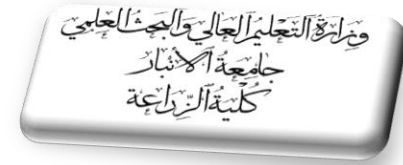 وزارة التعليم العالي والبحث العلمي
جامعة الانبار
كلية الزراعة